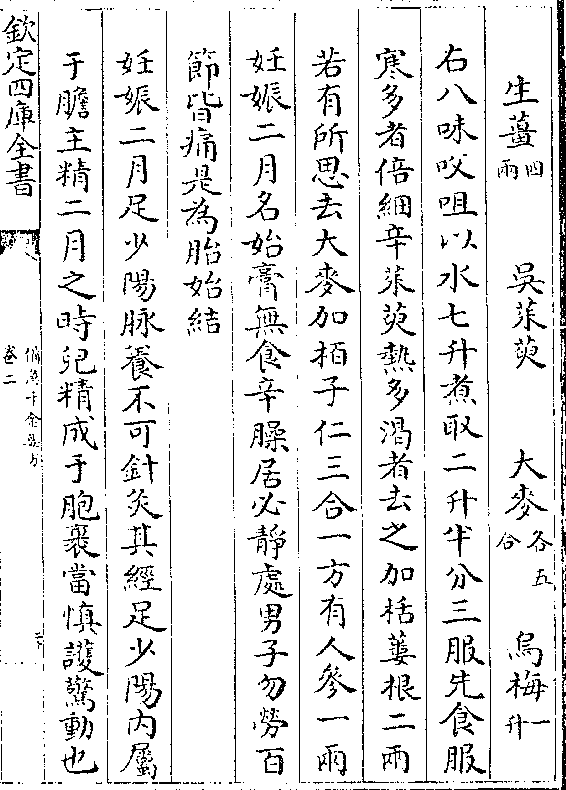 生薑四兩　吳茱萸　大麥各五合　烏梅一升
右八味㕮咀以水七升煮取二升半分三服先食服
寒多者倍細辛茱萸熱多渴者去之加栝蔞根二兩
若有所思去大麥加栢子仁三合一方有人參一兩
妊娠二月名始膏無食辛臊居必靜處男子勿勞百
節皆痛是為胎始結
妊娠二月足少陽脉養不可針灸其經足少陽内屬
于膽主精二月之時兒精成于胞裏當慎護驚動也
欽定四庫全書
備急千金要方
卷二